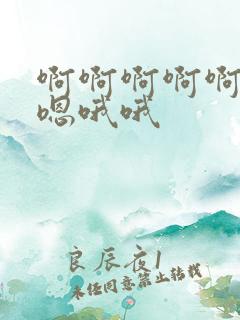 啊啊啊啊啊
嗯哦哦
良辰夜1
未经同意禁止转载